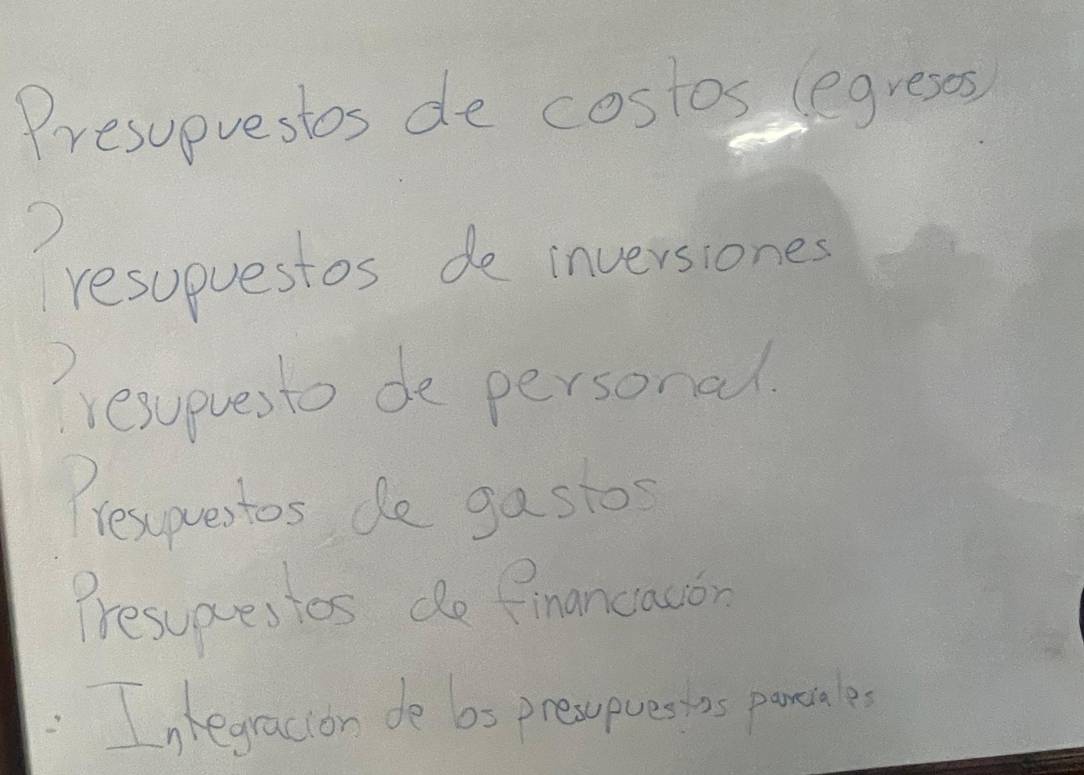 Presupuestos de costos (egresos)
Presupuestos de inversiones
Presupuesto de personal.
Presupuestos de gastos
Presupuestos de financiación
: Integración de los presupuestos parciales